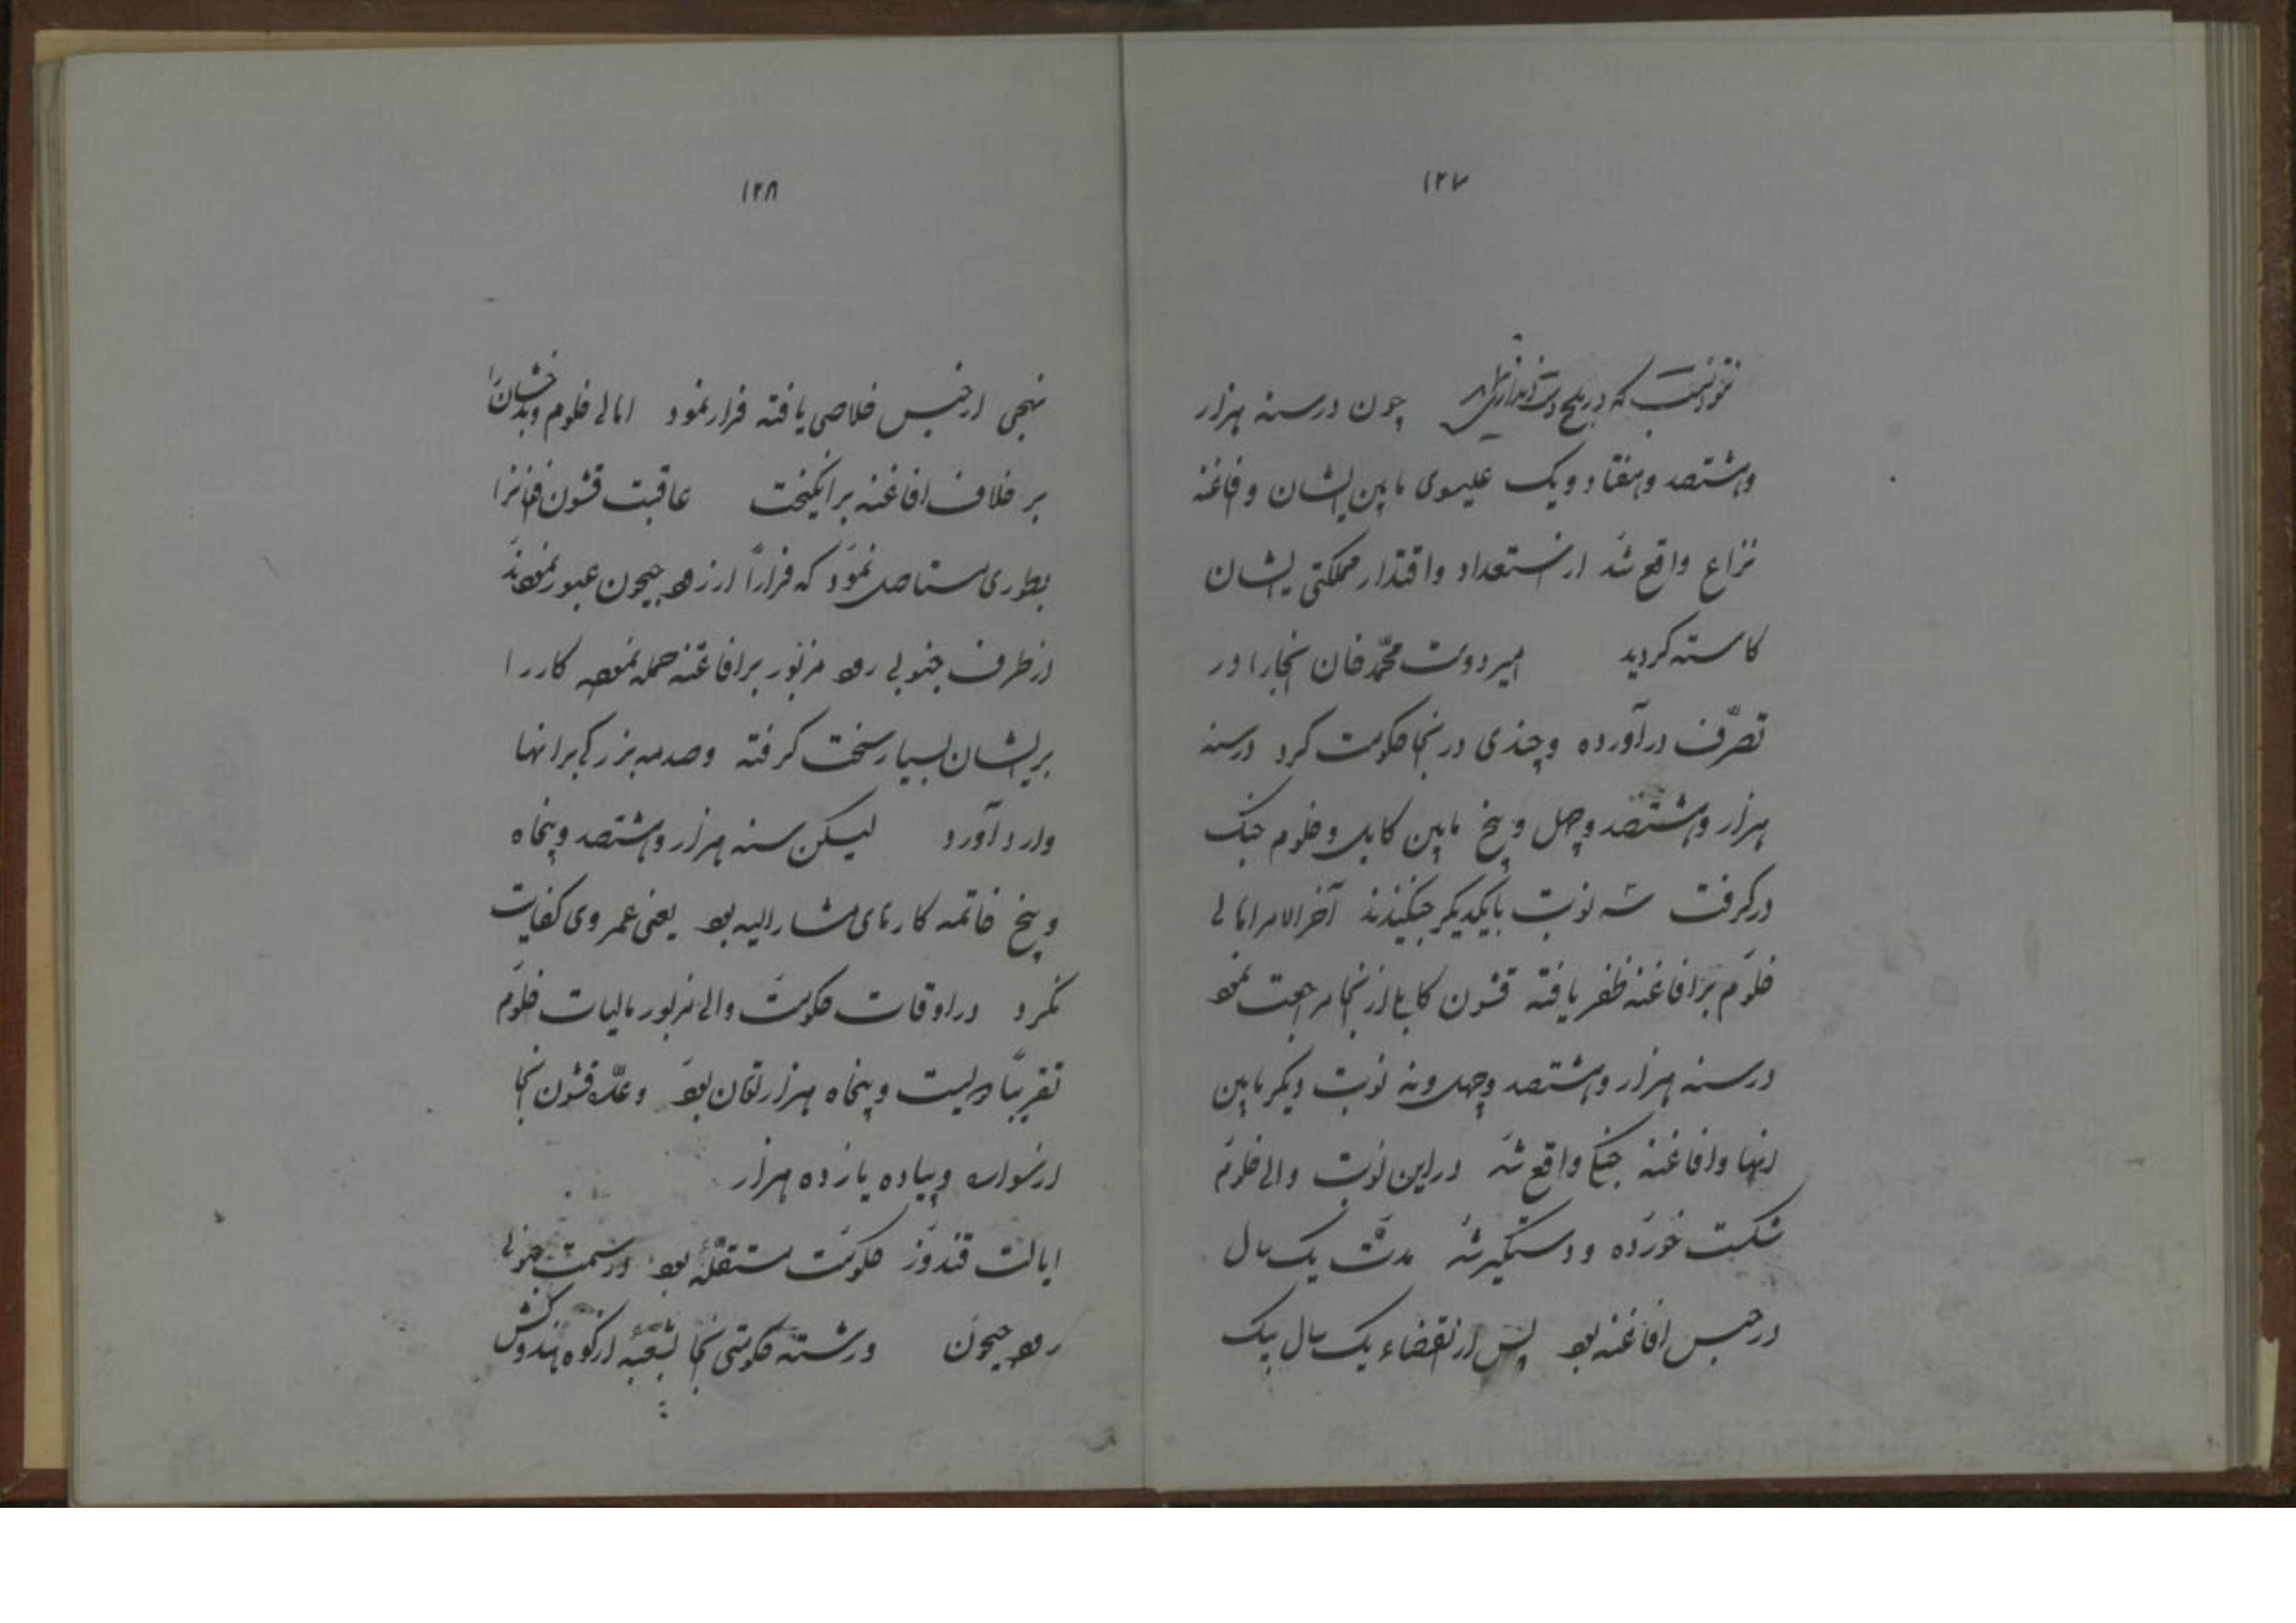 ۱۲۷
نتوانست که در بلخ دست اندازی نماید چون در سنه هزار
و هشتصد و هفتاد و یک عیسوی مابین ایشان و افاغنه
نزاع واقع شد از استعداد و اقتدار مملکتی ایشان
کاسته گردید امیر دوست محمّد خان آنجا را در
تصرّف درآورده و چندی در آنجا حکومت کرد در سنه
هزار و هشتصد و چهل و پنج مابین کابل و خلوم جنگ
درگرفت سه نوبت بایکدیگر جنگیدند آخرالامر اهالی
خلوم بر افاغنه ظفر یافته قشون کابل از آنجا مراجعت نمود
در سنه هزار و هشتصد و چهل و نه نوبت دیگر مابین
آنها و افاغنه جنگ واقع شد در این نوبت والی خلوم
شکست خورده و دستگیر شد مدّت یک سال
در حبس افاغنه بود پس از انقضاء یک سال بیک
۱۲۸
نهجی از حبس خلاصی یافته فرار نمود اهالی خلوم و بدخشان را
بر خلاف افاغنه برانگیخت عاقبت قشون افاغنه را
بطوری مستاصل نمود که فراراً از رود جیحون عبور نمودند
از طرف جنوبی رود مزبور بر افاغنه حمله نموده کار را
بر ایشان بسیار سخت گرفته و صدمه بزرگی بر آنها
وارد آورد لیکن سنه هزار و هشتصد و پنجاه
و پنج خاتمه کارهای مشارالیه بود یعنی عمر وی کفایت
نکرد در اوقات حکومت والی مزبور مالیات خلوم
تقریباً دویست و پنجاه هزار تومان بود و عدّه قشون آنجا
از سواره و پیاده یازده هزار
ایالت قندوز حکومت مستقلّه بود در سمت جنوبی
رود جیحون و رشته حکومتی آنجا بشعبهٔ از کوه هندوکش